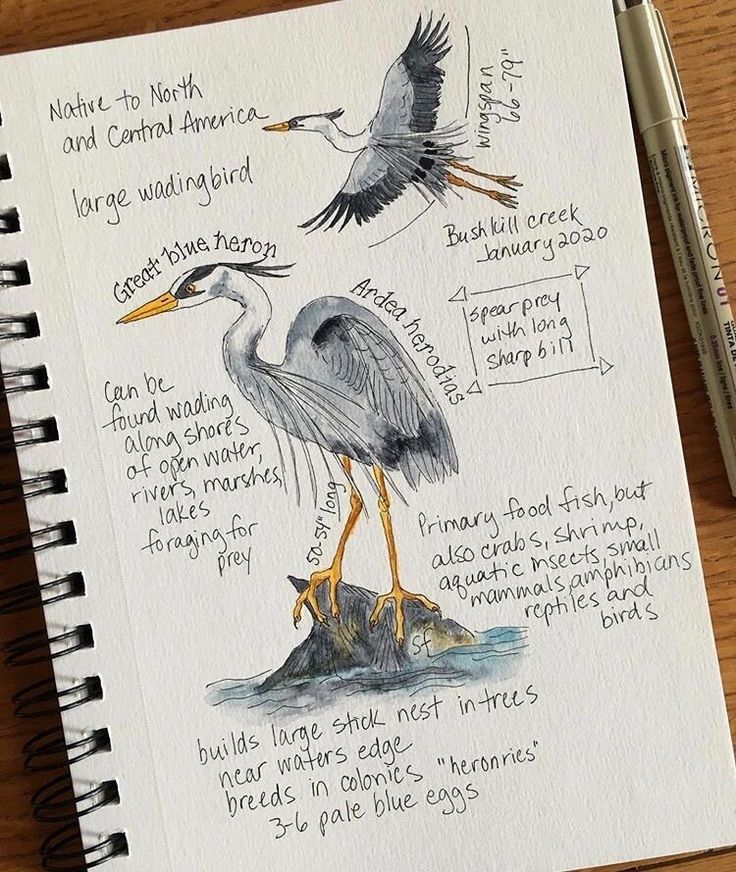 Native to North
and Central America
large wadingbird
wingspan
66-79"
Bushkill creek
January 2020
Great blue heron
Ardea herodias
spear prey
with long
sharp bill
Can be
found wading
along shores
of open water,
rivers, marshes,
lakes
foraging for
prey
50-54" long
Primary food fish, but
also crabs, shrimp,
aquatic insects, small
mammals, amphibians
reptiles and
birds
sf
builds large stick nest in trees
near waters edge
breeds in colonies "heronries"
3-6 pale blue eggs
MICRON 01